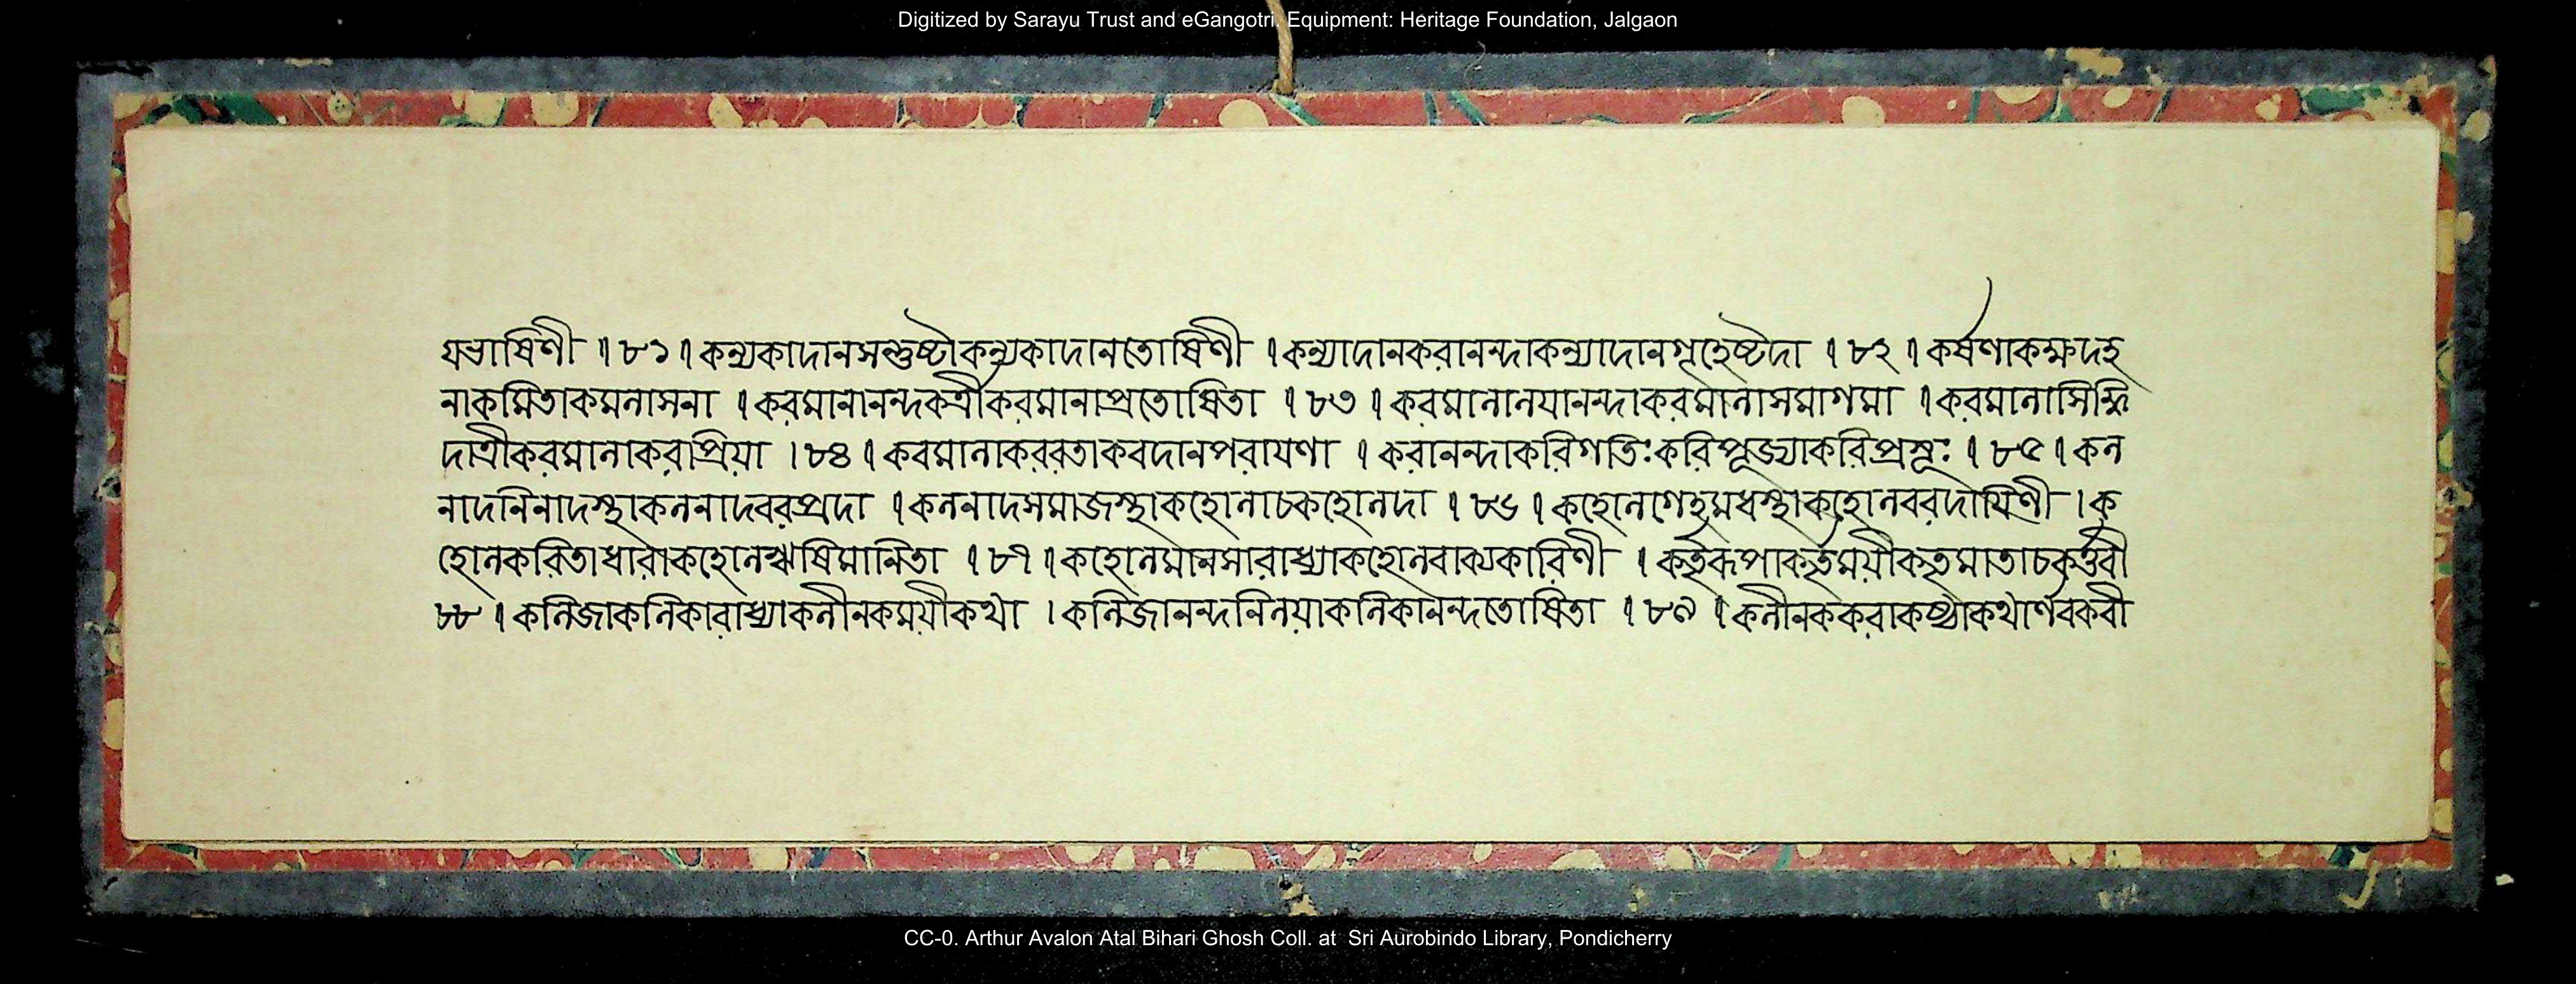 Digitized by Sarayu Trust and eGangotri. Equipment: Heritage Foundation, Jalgaon
যভাষিণী । ৮১ । কন্যকাদানসন্তুষ্টাকন্যকাদানতোষিণী । কন্যাদানকরানন্দাকন্যাদানগৃহেষ্টদা । ৮২ । কর্ষণাকক্ষদহ
নাকমিতাকমনাসনা । করমানানন্দকর্ত্রীকরমানাপ্রতোষিতা । ৮৩ । করমানানযানন্দাকরমানাসমাগমা । করমানাসিদ্ধি
দাত্রীকরমানাকরাপ্রিয়া । ৮৪ । করমানাকররতাকরদানপরাযণা । করানন্দাকরিগতিঃকরিপূজ্যাকরিপ্রসূঃ । ৮৫ । কন
নাদনিনাদস্থাকননাদবরপ্রদা । কননাদসমাজস্থাকহোনাচকহোনদা । ৮৬ । কহোনগেহমধস্থাকহোনবরদাযিণী । ক
হোনকরিতাধারাকহোনঋষিমানিতা । ৮৭ । কহোনমানসারাধ্যাকহোনবাক্যকারিণী । কর্তৃরূপাকর্তৃময়ীকর্তৃমাতাচকর্ত্তরী
৮৮ । কনিজাকনিকারাধ্যাকনীনকময়ীকথা । কনিজানন্দনিনয়াকনিকানন্দতোষিতা । ৮৯ । কনীনককরাকন্থাকথার্ণবকবী
CC-0. Arthur Avalon Atal Bihari Ghosh Coll. at Sri Aurobindo Library, Pondicherry